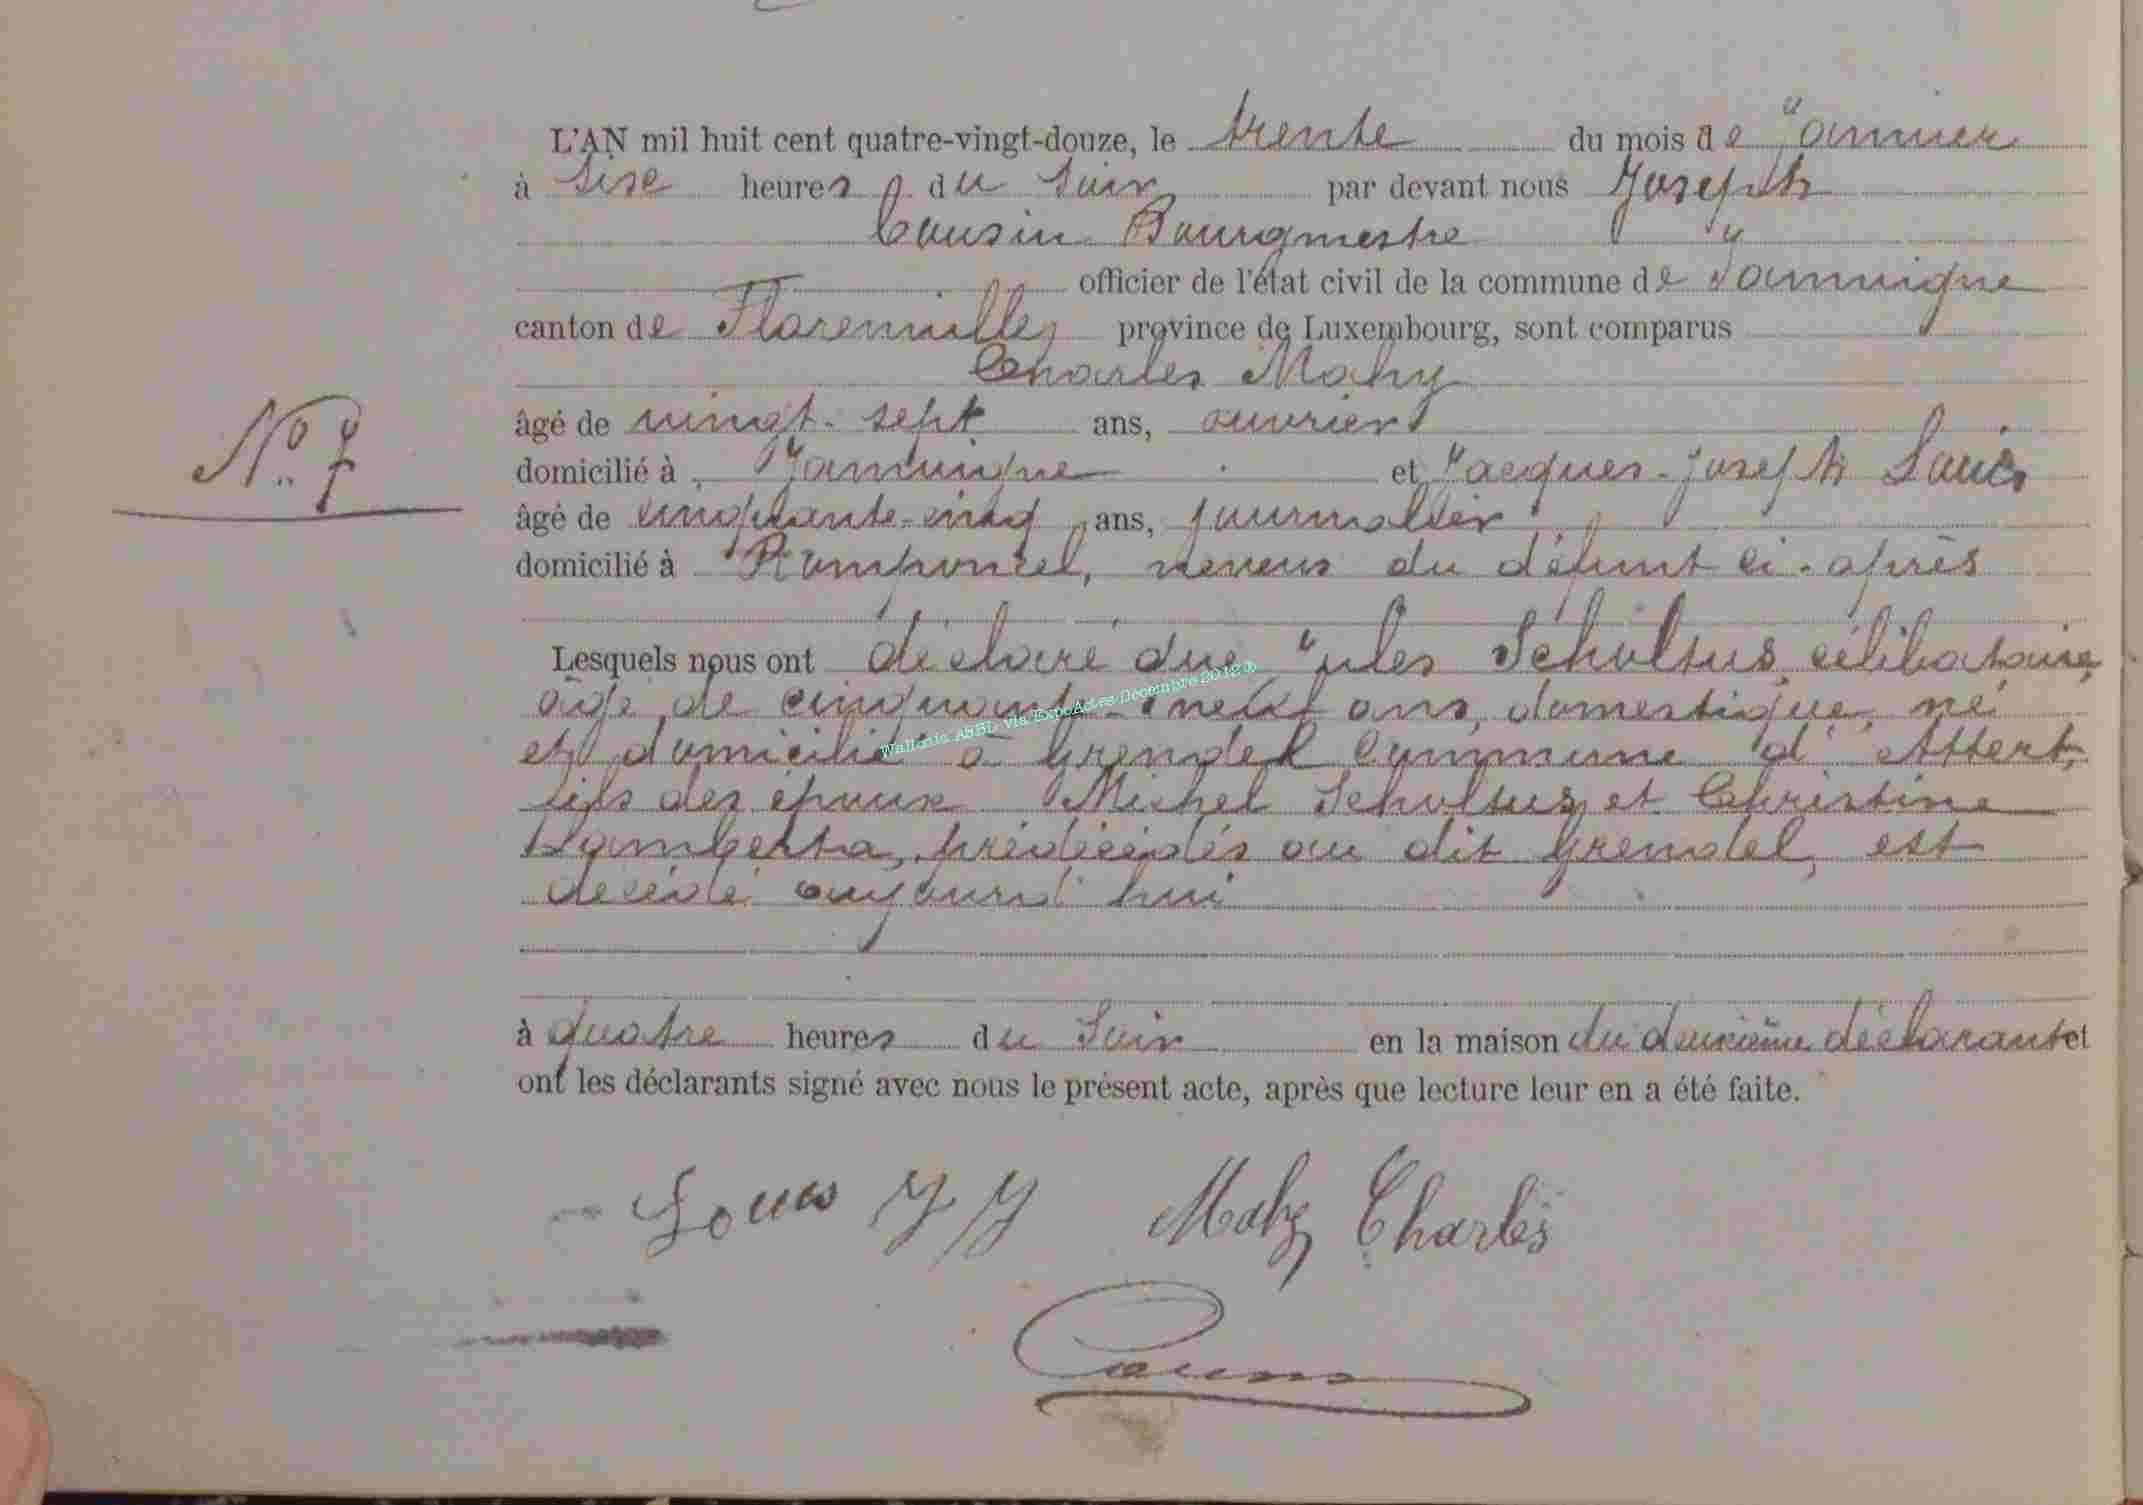 L'AN mil huit cent quatre-vingt-douze, le trente du mois de Janvier
à six heures du Soir par devant nous Joseph
Cousin Bourgmestre
officier de l'état civil de la commune de Jamoigne
canton de Florenville, province de Luxembourg, sont comparus
Charles Mahy
N° 7
âgé de vingt-sept ans, ouvrier
domicilié à Jamoigne et Jacques-Joseph Louis
âgé de cinquante-cinq ans, journalier
domicilié à Romponcel, neveux du défunt ci-après
Lesquels nous ont déclaré que Jules Scholtus, célibataire,
âgé de cinquante-neuf ans, domestique, né
et domicilié à Grendel Commune d'Attert,
fils des époux Michel Scholtus, et Christine
Lamberta, prédécédés au dit Grendel, est
décédé aujourd'hui
Wallonia ASBL via ExpoActes Décembre 2012 ©
à quatre heures du Soir en la maison du deuxième déclarant et
ont les déclarants signé avec nous le présent acte, après que lecture leur en a été faite.
Louis J J Mahy Charles
Cousin